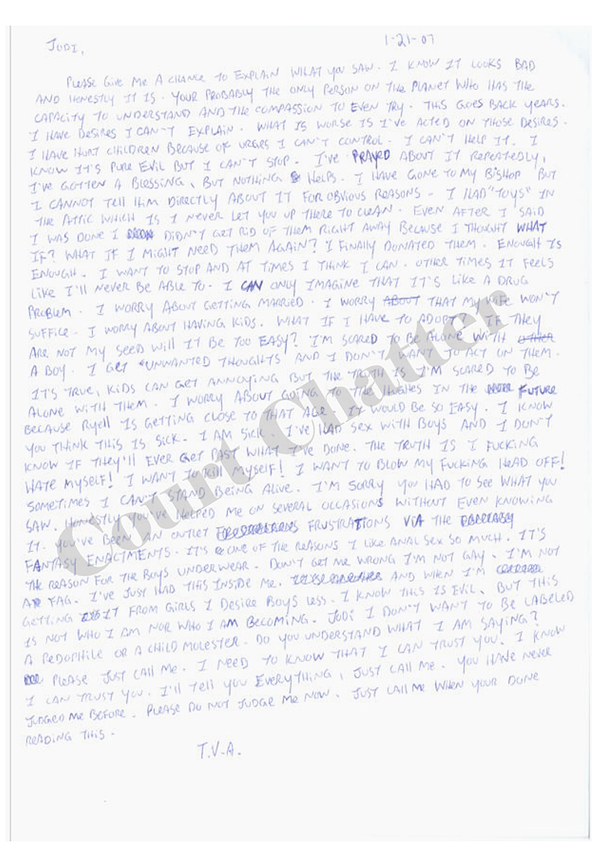 1-21-07
JODI,
PLEASE GIVE ME A CHANCE TO EXPLAIN WHAT YOU SAW. I KNOW IT LOOKS BAD
AND HONESTLY IT IS. YOUR PROBABLY THE ONLY PERSON ON THE PLANET WHO HAS THE
CAPACITY TO UNDERSTAND AND THE COMPASSION TO EVEN TRY. THIS GOES BACK YEARS.
I HAVE DESIRES I CAN'T EXPLAIN. WHAT IS WORSE IS I'VE ACTED ON THOSE DESIRES.
I HAVE HURT CHILDREN BECAUSE OF URGES I CAN'T CONTROL. I CAN'T HELP IT. I
KNOW IT'S PURE EVIL BUT I CAN'T STOP. I'VE PRAYED ABOUT IT REPEATEDLY,
I'VE GOTTEN A BLESSING, BUT NOTHING HELPS. I HAVE GONE TO MY BISHOP BUT
I CANNOT TELL HIM DIRECTLY ABOUT IT FOR OBVIOUS REASONS. I HAD "TOYS" IN
THE ATTIC WHICH IS I NEVER LET YOU UP THERE TO CLEAN. EVEN AFTER I SAID
I WAS DONE I DIDN'T GET RID OF THEM RIGHT AWAY BECAUSE I THOUGHT WHAT
IF? WHAT IF I MIGHT NEED THEM AGAIN? I FINALLY DONATED THEM. ENOUGH IS
ENOUGH. I WANT TO STOP AND AT TIMES I THINK I CAN. OTHER TIMES IT FEELS
LIKE I'LL NEVER BE ABLE TO. I CAN ONLY IMAGINE THAT IT'S LIKE A DRUG
PROBLEM. I WORRY ABOUT GETTING MARRIED. I WORRY ABOUT THAT MY WIFE WON'T
SUFFICE. I WORRY ABOUT HAVING KIDS. WHAT IF I HAVE TO ADOPT? IF THEY
ARE NOT MY SEED WILL IT BE TOO EASY? I'M SCARED TO BE ALONE WITH
A BOY. I GET "UNWANTED THOUGHTS" AND I DON'T WANT TO ACT ON THEM.
IT'S TRUE, KIDS CAN GET ANNOYING BUT THE TRUTH IS I'M SCARED TO BE
ALONE WITH THEM. I WORRY ABOUT GOING TO THE HUGHES IN THE FUTURE
BECAUSE IS GETTING CLOSE TO THAT AGE. IT WOULD BE SO EASY. I KNOW
YOU THINK THIS IS SICK. I AM SICK. I'VE HAD SEX WITH BOYS AND I DON'T
KNOW IF THEY'LL EVER GET PAST WHAT I'VE DONE. THE TRUTH IS I FUCKING
HATE MYSELF! I WANT TO KILL MYSELF! I WANT TO BLOW MY FUCKING HEAD OFF!
SOMETIMES I CAN'T STAND BEING ALIVE. I'M SORRY YOU HAD TO SEE WHAT YOU
SAW. HONESTLY YOU'VE HELPED ME ON SEVERAL OCCASIONS WITHOUT EVEN KNOWING
IT. YOU'VE BEEN AN OUTLET FRUSTRATIONS VIA THE
FANTASY ENACTMENTS. IT'S ONE OF THE REASONS I LIKE ANAL SEX SO MUCH. IT'S
THE REASON FOR THE BOYS UNDERWEAR. DON'T GET ME WRONG I'M NOT GAY. I'M NOT
A FAG. I'VE JUST HAD THIS INSIDE ME. AND WHEN I'M
GETTING IT FROM GIRLS I DESIRE BOYS LESS. I KNOW THIS IS EVIL, BUT THIS
IS NOT WHO I AM NOR WHO I AM BECOMING. JODI I DON'T WANT TO BE LABELED
A PEDOPHILE OR A CHILD MOLESTER. DO YOU UNDERSTAND WHAT I AM SAYING?
PLEASE JUST CALL ME. I NEED TO KNOW THAT I CAN TRUST YOU. I KNOW
I CAN TRUST YOU. I'LL TELL YOU EVERYTHING, JUST CALL ME. YOU HAVE NEVER
JUDGED ME BEFORE. PLEASE DO NOT JUDGE ME NOW. JUST CALL ME WHEN YOUR DONE
READING THIS.
T.V.A.
Court Chatter